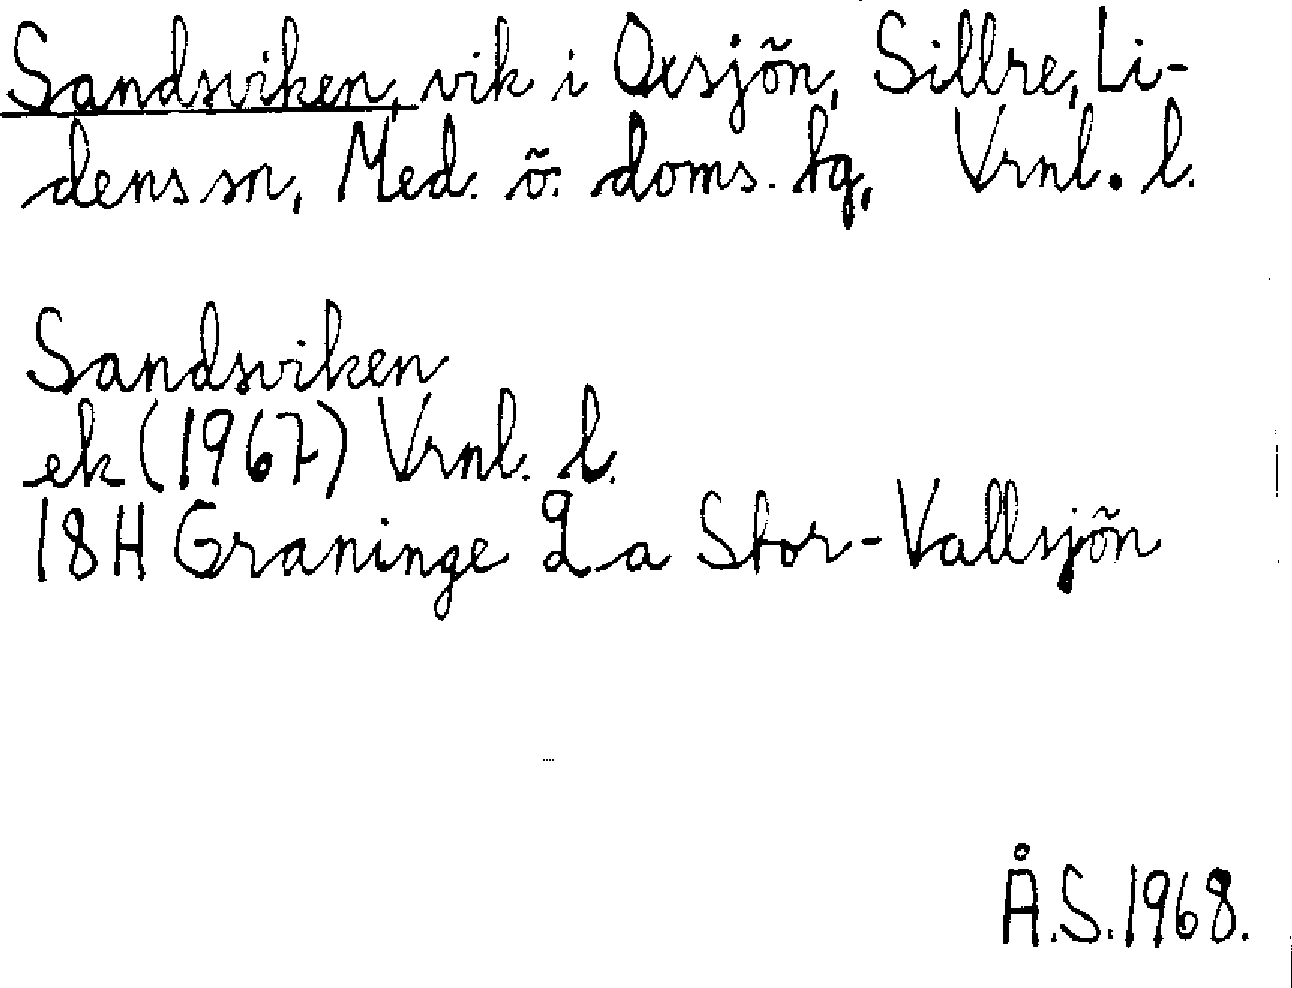 Sandsviken, vik i Oxsjön, Sillre, Li-
dens sn, Med. ö. doms. tg, Vrnl. l.
Sandsviken
ek (1967) Vrnl. l.
18H Graninge 2 a Stor-Vallsjön
Å.S. 1968.